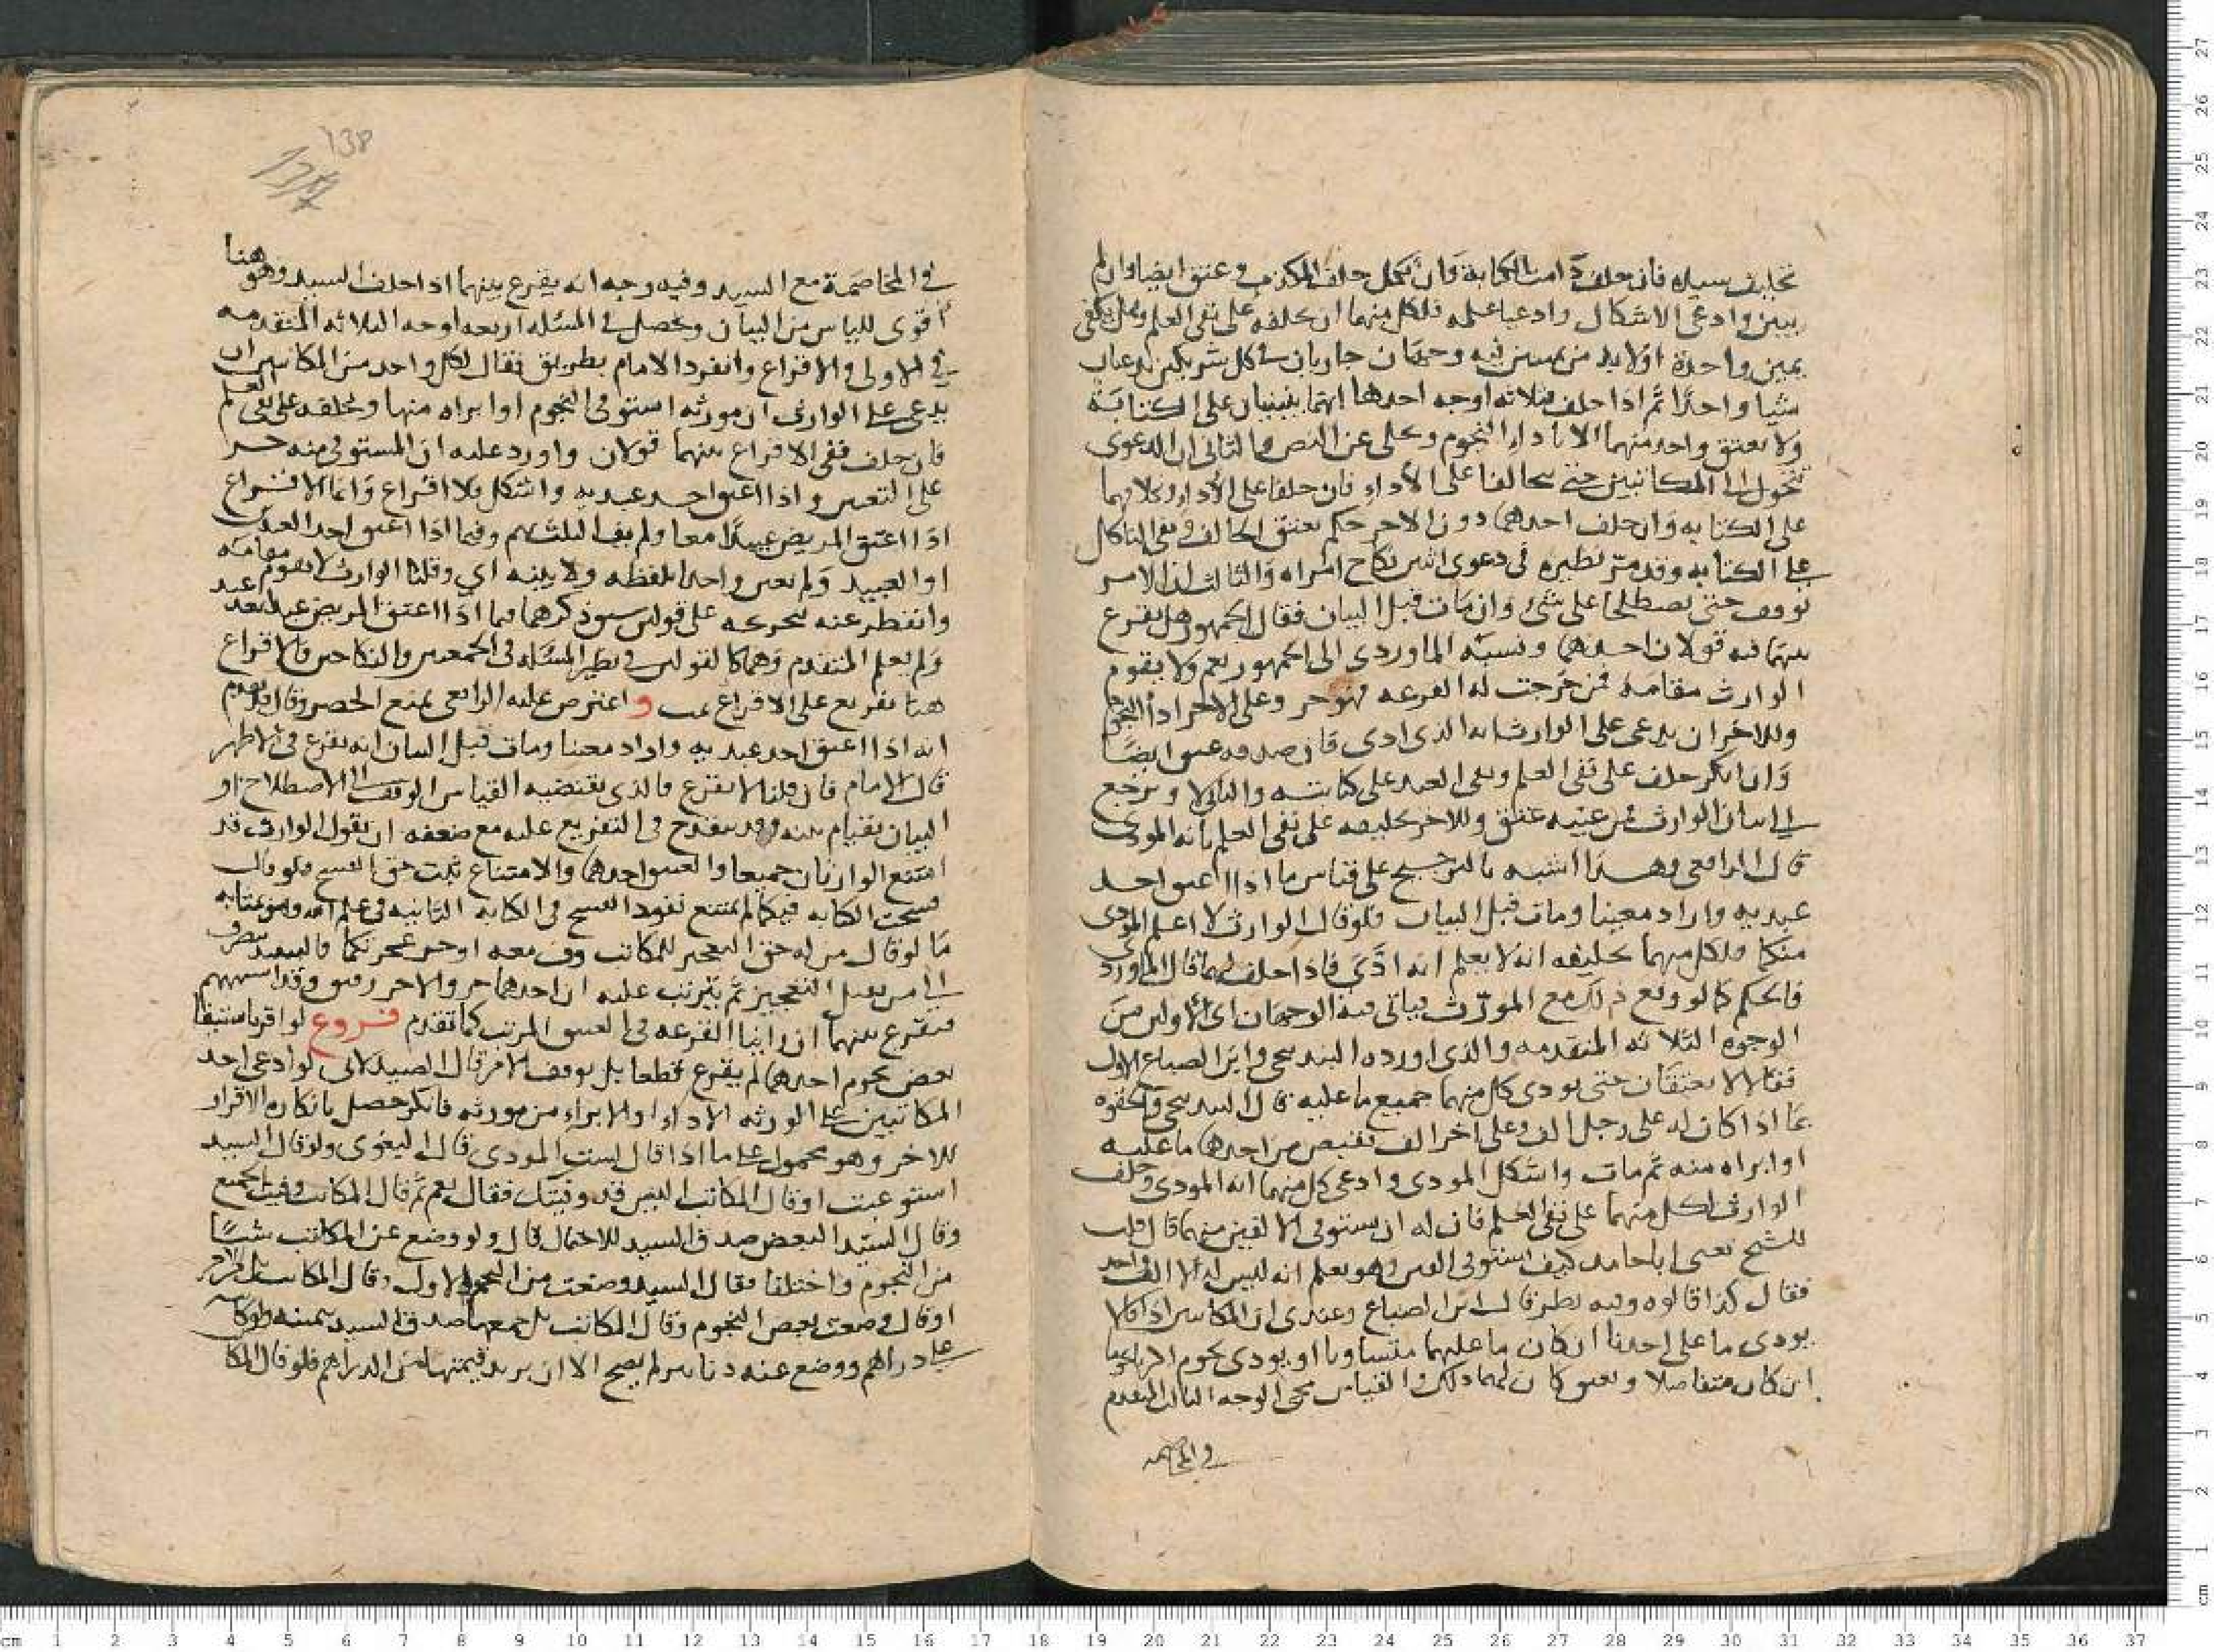 تحليف سيده فان حلف دامت الكتابة وان نكل حلف المكذب وعتق ايضا وان لم
يبين وادعى الاشكال وادعيا علمه فلكل منهما ان يحلفه على نفى العلم وهل يكفى
يمين واحدة او لا بد من يمينين فيه وجهان جاريان في كل شريكين يدعيان
شيا واحدا ثم اذا حلف فثلاثه اوجه احدها انهما يبقيان على الكتابة
ولا يعتق واحد منهما الا باداء النجوم وحكى عن النص والثانى ان الدعوى
تتحول الى المكاتبين حتى يتحالفا على الأداء فان حلفا على الأداء وكلاهما
على الكتابه وان حلف احدهما دون الاخر حكم بعتق الحالف وبقى الناكل
على الكتابه وقد مر نظيره في دعوى اثنين نكاح امراه والثالث ان الامر
يوقف حتى يصطلحا على شئ وان مات قبل البيان فقال الجمهور هل يقرع
بينهما فيه قولان احدهما ونسبه الماوردى الى الجمهور نعم ولا يقوم
الوارث مقامه فمن خرجت له القرعه فهو حر وعلى الاخر اداء النجوم
وللاخر ان يدعى على الوارث انه الذى ادى فان صدقه عتق ايضا
وان انكر حلف على نفى العلم وبقى العبد على كتابته والثانى لا ويرجع
الى بيان الوارث فمن عينه عتق وللاخر تحليفه على نفى العلم بانه المودى
قال الرافعى وهذا اشبه بالترجيح على قياس ما اذا اعتق احد
عبديه واراد معينا ومات قبل البيان فلو قال الوارث لا اعلم المودى
منكما فلكل منهما تحليفه انه لا يعلم انه ادى فاذا حلف لهما قال الماوردى
فالحكم كما لو وقع ذلك مع المورث فياتى فيه الوجهان اى الاولين من
الوجوه الثلاثه المتقدمه والذى اورده البندنيجى وابن الصباغ الاول
فقالا لا يعتقان حتى يودى كل منهما جميع ما عليه قال البندنيجى
عما اذا كان له على رجل الف وعلى اخر الف فقبض من احدهما ما عليه
او ابراه منه ثم مات واشكل المودى وادعى كل منهما انه المودى وحلف
الوارث لكل منهما على نفى العلم فان له ان يستوفى الالفين منهما قال قلت
للشيخ يعنى ابا حامد كيف يستوفى الفين وهو يعلم انه ليس له الا الف واحد
فقال كذا قالوه وفيه نظر قال ابن الصباغ وعندى ان المكاتبين اذا قالا
يودى ما على احدنا ان كان ما عليهما متساويا او يودى نجوم
ان كان متفاضلا ويعتق كان لهما ذلك والقياس مجى الوجه الثالث المتقدم
في المخاصمه
138
في المخاصمة مع السيد وفيه وجه انه يقرع بينهما اذا حلف السيد وهو هنا
اقوى للياس من البيان وتحصل في المسئله اربعه اوجه الثلاثه المتقدمه
في الاولى والاقراع وانفرد الامام بطريق فقال لكل واحد من المكاتبين ان
يدعى على الوارث ان مورثه استوفى النجوم او ابراه منها ويحلفه على نفى العلم
فان حلف ففى الاقراع بينهما قولان واورد عليه ان المستوفى منه حر
على التعيين واذا اعتق احد عبديه واشكل فلا اقراع وانما الاقراع
اذا اعتق المريض عبيدا معا ولم يف الثلث بهم وفيما اذا اعتق احد العبدين
او العبيد ولم يعين واحدا بلفظه ولا بنيته اي وقلنا الوارث لا يقوم مقامه
وانفصل عنه بتخريجه على قولين سبق ذكرهما فيما اذا اعتق المريض عبدا بعد عبد
ولم يعلم المتقدم وهما كالقولين في نظير المسئله في الجمعتين والنكاحين فالاقراع
هنا تفريع على الاقراع واعترض عليه الرافعى بمنع الحصر وقال تقدم
انه اذا اعتق احد عبديه واراد معينا ومات قبل البيان انه يقرع في الاظهر
قال الامام فان قلنا لا يقرع فالذى يقتضيه القياس الوقف الى الاصطلاح او
البيان بقيام بينه وقد ينقدح في التفريع عليه مع ضعفه ان يقول الوارث قد
امتنع الوارثان جميعا والعتيق احدهما والامتناع يثبت حق الفسخ فلو قال
فسخت الكتابه فيكما لم يمتنع نفوذ الفسخ في الكتابه الثانيه في علم الله وهو بمثابه
ما لو قال من له حق التعجيز للمكاتب وقف معه او حر عجزتكما فالتعجيز ينصرف
الى من يقبل التعجيز ثم يترتب عليه ان احدهما حر والاخر رقيق وقد استبهم
فيقرع بينهما ان راينا القرعه في العتق المرتب كما تقدم فروع لو اقر باستيفا
بعض نجوم احدهما لم يقرع قطعا بل يوقف الامر قال الصيدلانى لو ادعى احد
المكاتبين على الورثه الاداء او الابراء من مورثه فانكر حصل بانكاره الاقرار
للاخر وهو محمول على ما اذا قال لست المودى قال البغوى ولو قال السيد
استوعبت او قال المكاتب اليس قد وفيتك فقال نعم ثم قال المكاتب وفيت الجميع
وقال السيد البعض صدق السيد للاحتمال قال ولو وضع عن المكاتب شيئا
من النجوم واختلفا فقال السيد وضعت من النجم الاول وقال المكاتب بل الاخر
او قال وضعت بعض النجوم وقال المكاتب بل جميعها صدق السيد بيمينه ولو كاتبه
على دراهم ووضع عنه دنانير لم يصح الا ان يريد قيمتها من الدراهم فلو قال المكا